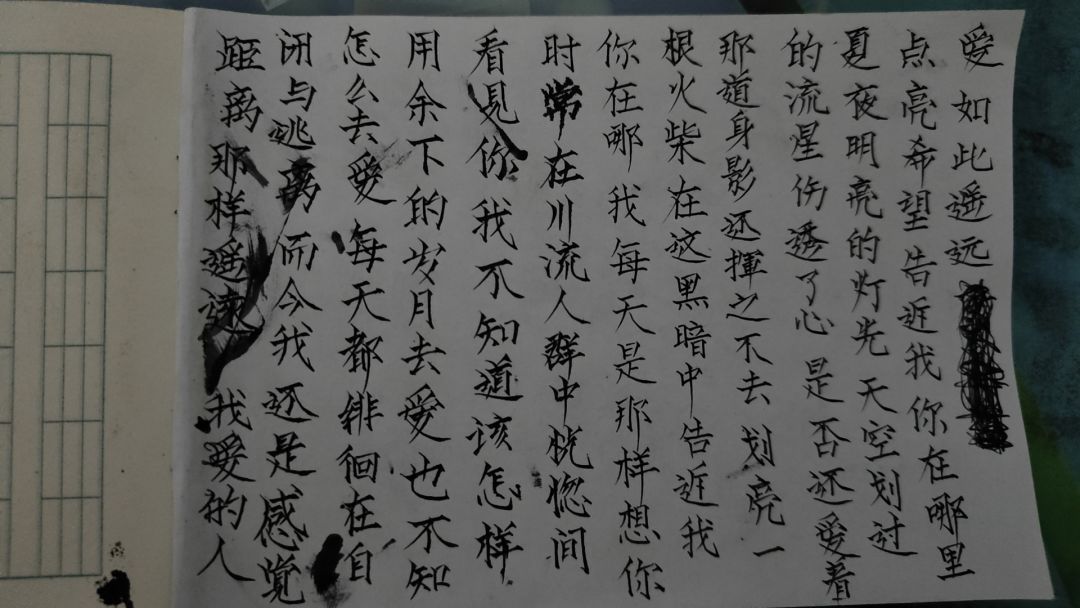 爱如此遥远
点亮希望告近我你在哪里
夏夜明亮的灯光天空划过
的流星伤透了心是否还爱着
那道身影还挥之不去划亮一
根火柴在这黑暗中告近我
你在哪我每天是那样想你
时常在川流人群中恍惚间
看见你我不知道该怎样
用余下的岁月去爱也不知
怎么去爱每天都徘徊在自
闭与逃离而今我还是感觉
距离那样遥远我爱的人